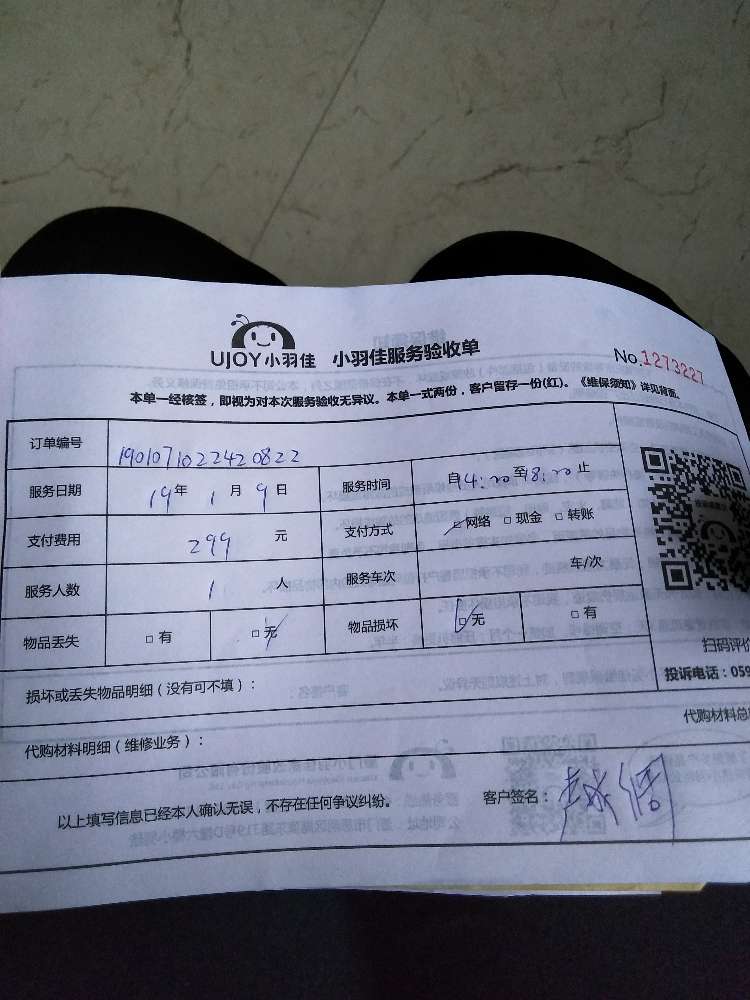 UJOY小羽佳 小羽佳服务验收单
No.1273227
本单一经核签，即视为对本次服务验收无异议。本单一式两份，客户留存一份(红)。《维保须知》详见背面。
订单编号 1901071022420822
服务日期 19年 1月 9日 服务时间 自14:20至18:20止
支付费用 299 元 支付方式 □网络 □现金 □转账
服务人数 1 人 服务车次 车/次
物品丢失 □有 □无 物品损坏 □无 □有
扫码评价
投诉电话：059
损坏或丢失物品明细（没有可不填）：
代购材料总
代购材料明细（维修业务）：
以上填写信息已经本人确认无误，不存在任何争议纠纷。 客户签名：